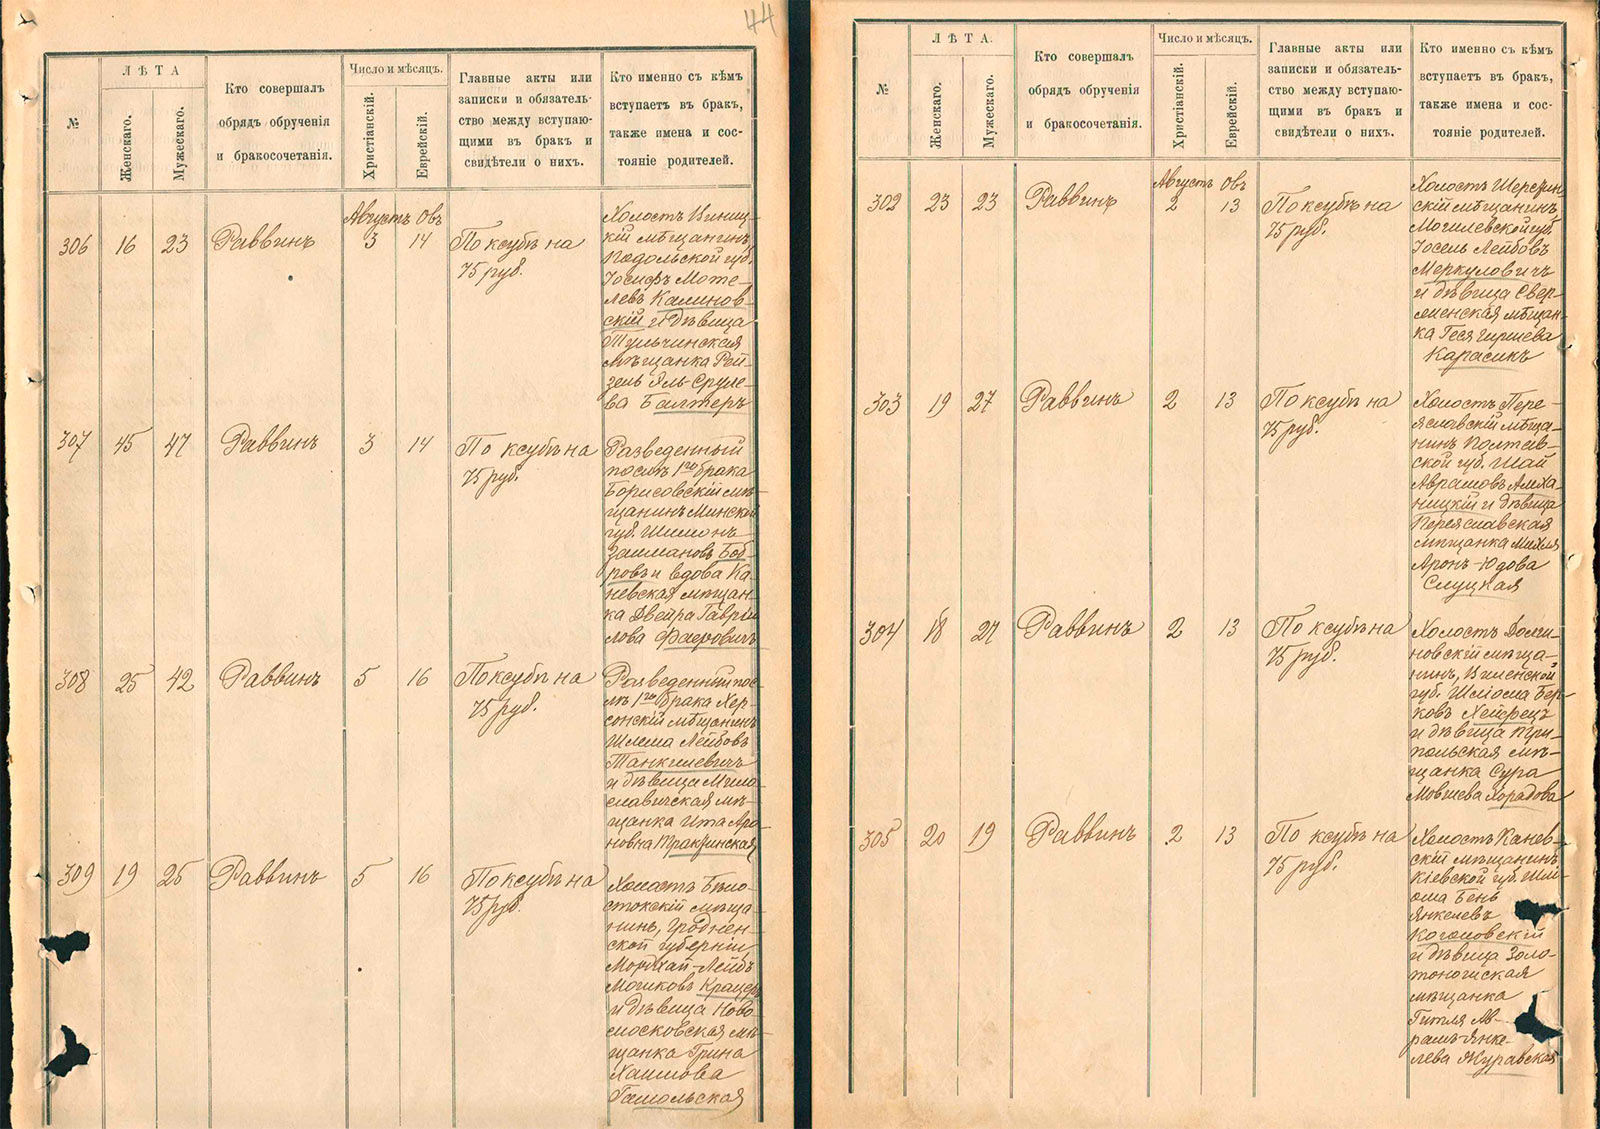 44
№
ЛѢТА
Женскаго.
Мужескаго.
Кто совершалъ
обрядъ обрученія
и бракосочетанія.
Число и мѣсяцъ.
Христіанскій.
Еврейскій.
Главные акты или
записки и обязатель-
ство между вступаю-
щими въ бракъ и
свидѣтели о нихъ.
Кто именно съ кѣмъ
вступаетъ въ бракъ,
также имена и сос-
тояніе родителей.
Августъ Овъ
306 16 23 Раввинъ 3 14 По ксубѣ на
75 руб.
Холостъ Винниц-
кій мѣщанинъ
Подольской губ.
Іосифъ Моте-
левъ Калинов-
скій и дѣвица
Тульчинская
мѣщанка Рей-
зель Яль-Сруле-
ва Балтеръ
307 45 47 Раввинъ 3 14 По ксубѣ на
75 руб.
Разведенный
послѣ 1го брака
Борисовскій мѣ-
щанинъ Минской
губ. Шимонъ
Залмановъ Боб-
ровъ и вдова Ка-
невская мѣщан-
ка Двейра Гаврі-
лова Фаеровичъ
308 25 42 Раввинъ 5 16 По ксубѣ на
75 руб.
Разведенный пос-
лѣ 1го брака Хер-
сонскій мѣщанинъ
Шлема Лейбовъ
Танкилевичъ
и дѣвица Мило-
славичская мѣ-
щанка Ита Аро-
новна
309 19 25 Раввинъ 5 16 По ксубѣ на
75 руб.
Холостъ Бѣло-
стокскій мѣща-
нинъ, Гроднен-
ской губерніи
Мордхай-Лейбъ
Мошковъ
и дѣвица Ново-
московская мѣ-
щанка Грина
Хаимова
Гатольская
№
ЛѢТА.
Женскаго.
Мужескаго.
Кто совершалъ
обрядъ обрученія
и бракосочетанія.
Число и мѣсяцъ.
Христіанскій.
Еврейскій.
Главные акты или
записки и обязатель-
ство между вступаю-
щими въ бракъ и
свидѣтели о нихъ.
Кто именно съ кѣмъ
вступаетъ въ бракъ,
также имена и сос-
тояніе родителей.
Августъ Овъ
302 23 23 Раввинъ 2 13 По ксубѣ на
75 руб.
Холостъ Шерешин-
скій мѣщанинъ
Могилевской губ.
Іосель Лейбовъ
Меркуловичъ
и дѣвица Свер-
женская мѣщан-
ка Геся Гиршева
Карасикъ
303 19 27 Раввинъ 2 13 По ксубѣ на
75 руб.
Холостъ Пере-
яславскій мѣща-
нинъ Полтав-
ской губ. Шай
Аврамовъ Амха-
ницкій и дѣвица
Переяславская
мѣщанка Михля
Аронъ-Юдова
Слуцкая
304 18 27 Раввинъ 2 13 По ксубѣ на
75 руб.
Холостъ Долги-
новскій мѣща-
нинъ, Виленской
губ. Шліома Бер-
ковъ Хейфецъ
и дѣвица Три-
польская мѣ-
щанка Сура
Мовшева Хорадова
305 20 19 Раввинъ 2 13 По ксубѣ на
75 руб.
Холостъ Канев-
скій мѣщанинъ
Кіевской губ. Шлі-
ома Бень
Янкелевъ
Когановскій
и дѣвица Золо-
тоношская
мѣщанка
Гитля Ав-
рамъ-Янке-
лева Журавская